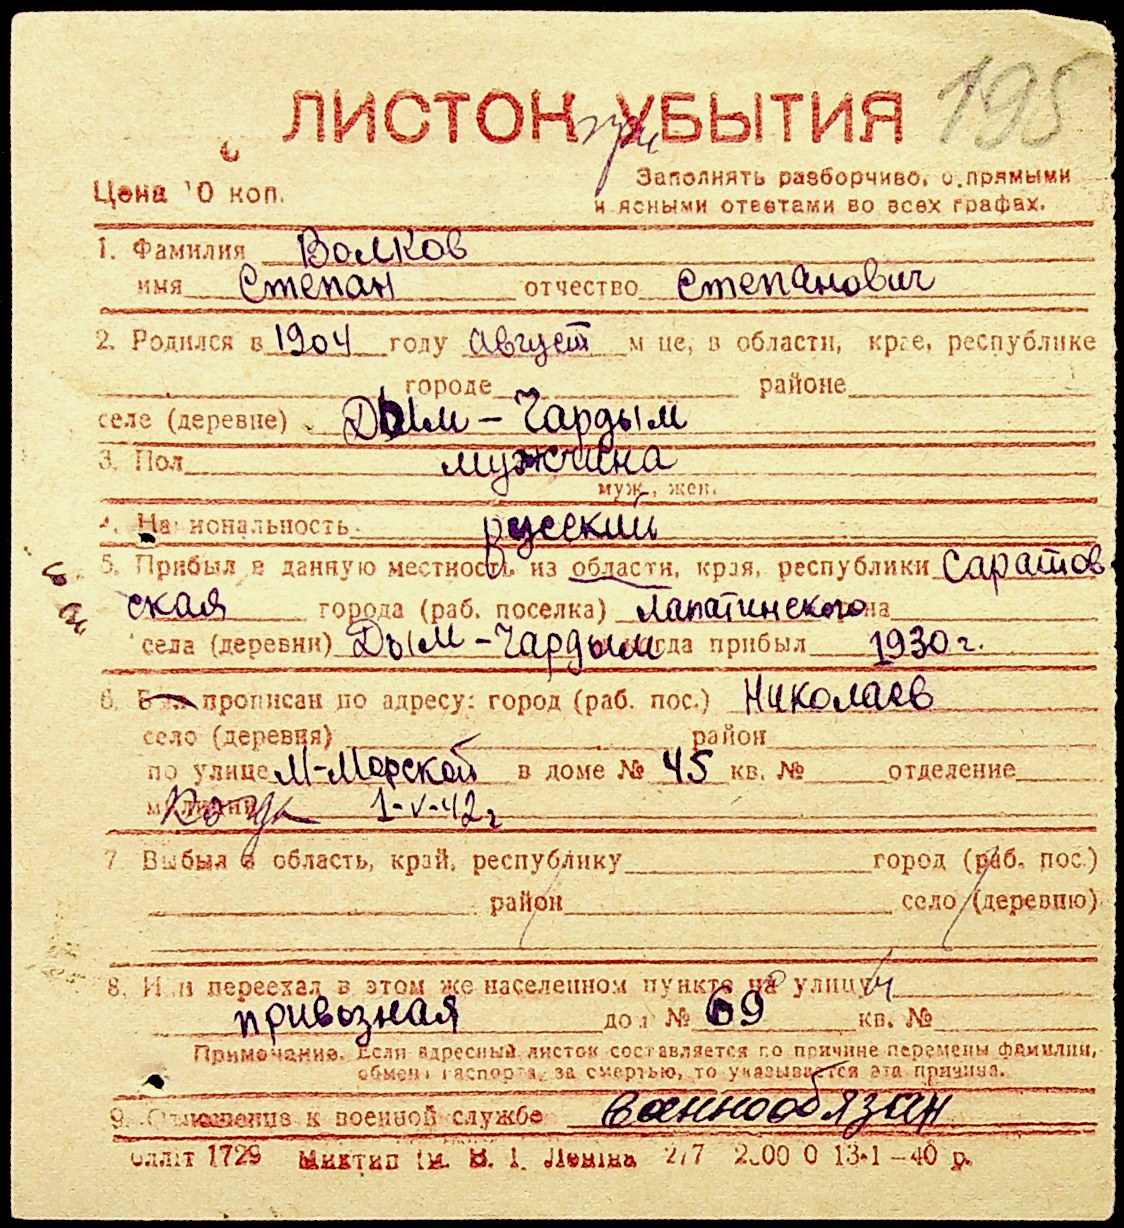 195
ЛИСТОК УБЫТИЯ
Цена 10 коп.
Заполнять разборчиво, с прямыми
и ясными ответами во всех графах.
1. Фамилия Волков
имя Степан отчество Степанович
2. Родился в 1904 году август м це, в области, крае, республике
городе районе
селе (деревне) Дым-Чардым
3. Пол мужчина
муж., жен.
4. Национальность русский
5. Прибыл в данную местность из области, края, республики Саратов
ская города (раб. поселка) Лапатинского на
села (деревни) Дым-Чардым когда прибыл 1930 г.
6. Был прописан по адресу: город (раб. пос.) Николаев
село (деревня) район
по улице М-Морской в доме № 45 кв. № отделение
милиции 1-V-42 г
7 Выбыл в область, край, республику город (раб. пос.)
район село (деревню)
8. Или переехал в этом же населенном пункте на улицу
привозная дом № 69 кв. №
Примечание. Если адресный листок составляется по причине перемены фамилии,
обмена паспорта, за смертью, то указывается эта причина.
9. Отношение к военной службе военнообязан
1729 Миктип ім. В. І. Леніна 40 р.